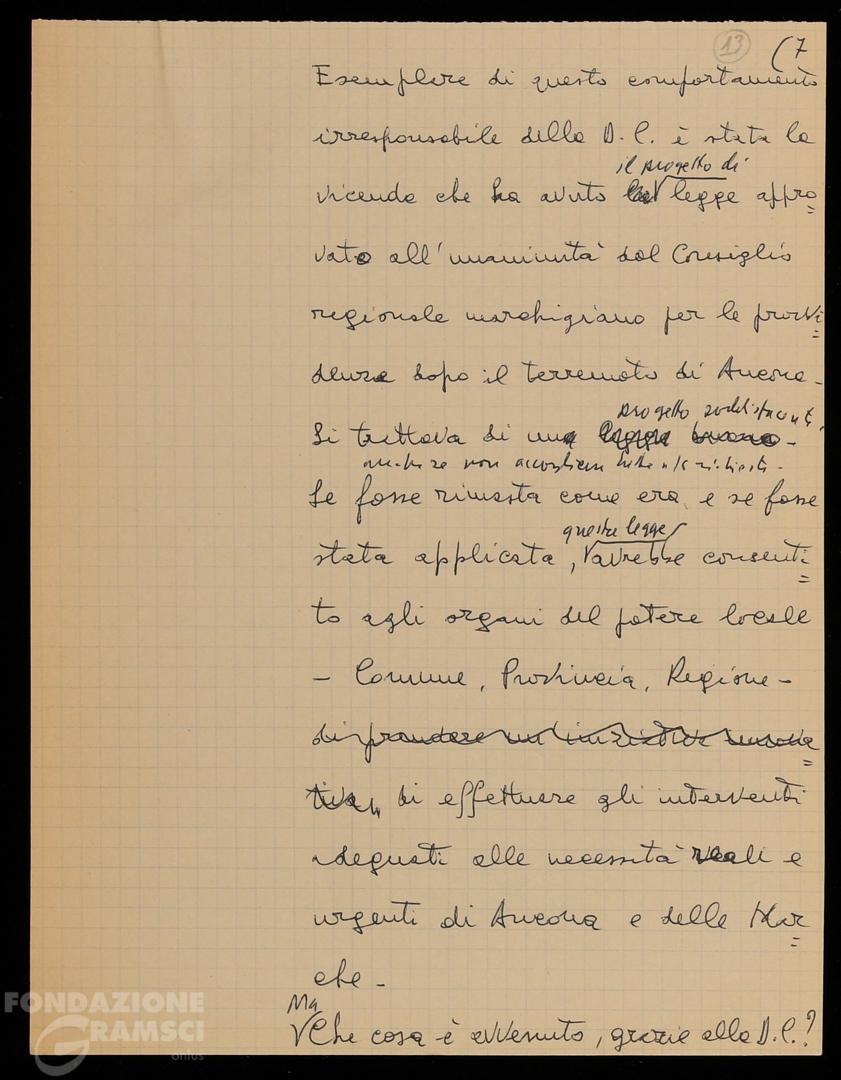 13 (7
Esemplare di questo comportamento
irresponsabile della D.C. è stata la
il progetto di
vicenda che ha avuto legge appro=
vato all'unanimità dal Consiglio
regionale marchigiano per le provvi=
denze dopo il terremoto di Ancona -
progetto soddisfacente,
Si trattava di una legge buona -
anche se non accoglieva tutte le richieste -
Se fosse rimasta come era e se fosse
questa legge
stata applicata, avrebbe consenti=
to agli organi del potere locale
- Comune, Provincia, Regione -
di prendere un'iniziativa innova=
tiva, di effettuare gli interventi
adeguati alle necessità reali e
urgenti di Ancona e delle Mar=
che -
Ma
Che cosa è avvenuto, grazie alla D.C.?
FONDAZIONE
GRAMSCI
onlus